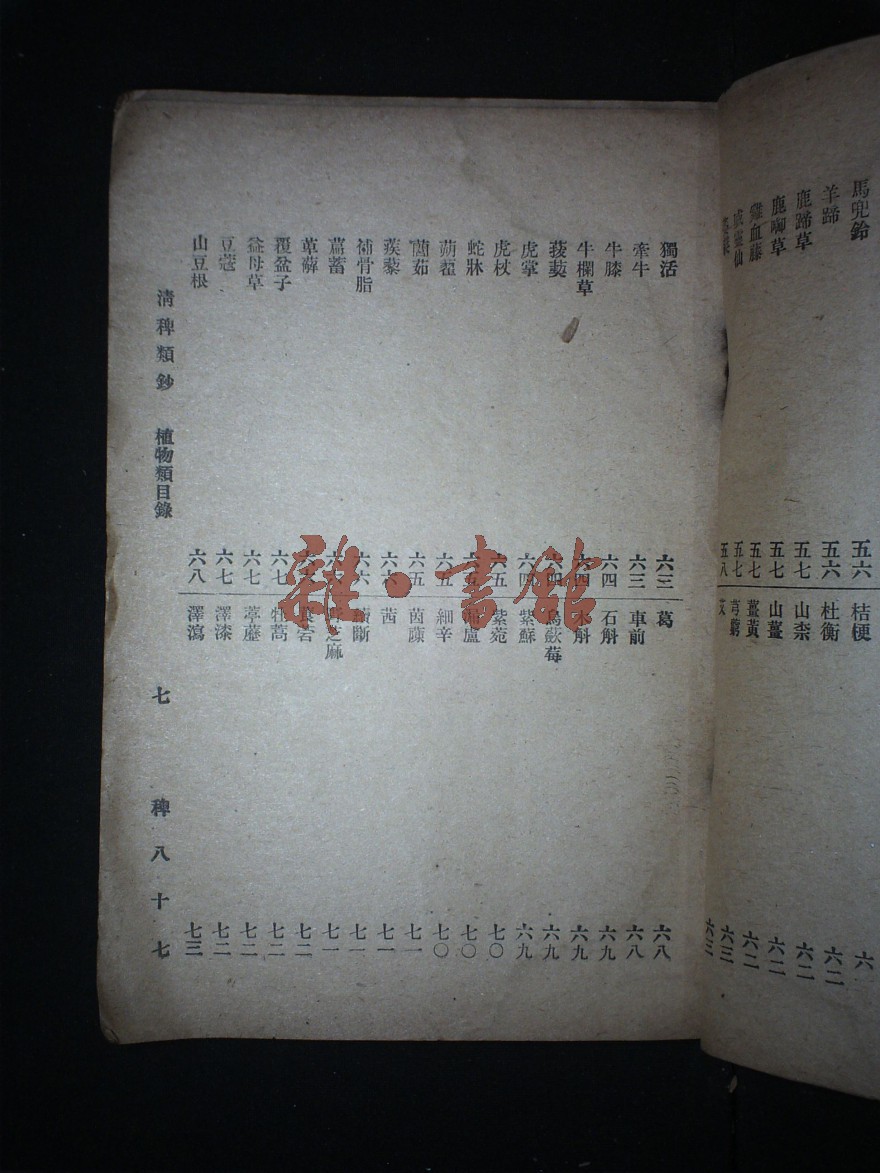 馬兜鈴 五六
羊蹄 五六
鹿蹄草 五七
鹿啣草 五七
雞血藤 五七
威靈仙 五七
五八
桔梗 六
杜衡 六二
山柰 六二
山薑 六二
薑黃 六二
芎藭 六三
艾 六三
獨活 六三
牽牛 六三
牛膝 六四
牛欄草 六四
菝葜 六四
虎掌 六四
虎杖 六五
蛇牀 六五
蒴藋 六五
藺茹 六五
蒺藜 六六
補骨脂 六六
萹蓄
萆薢
覆盆子 六七
益母草 六七
豆蔻 六七
山豆根 六八
葛 六八
車前 六八
石斛 六九
木斛 六九
烏蘞莓 六九
紫蘇 六九
紫菀 七〇
漏盧 七〇
細辛 七〇
茵蔯 七一
茜 七一
續斷 七一
芝麻 七一
莨菪 七二
牡蒿 七二
葶藶 七二
澤漆 七二
澤瀉 七三
清稗類鈔 植物類目錄 七 稗八十七
雜·書館